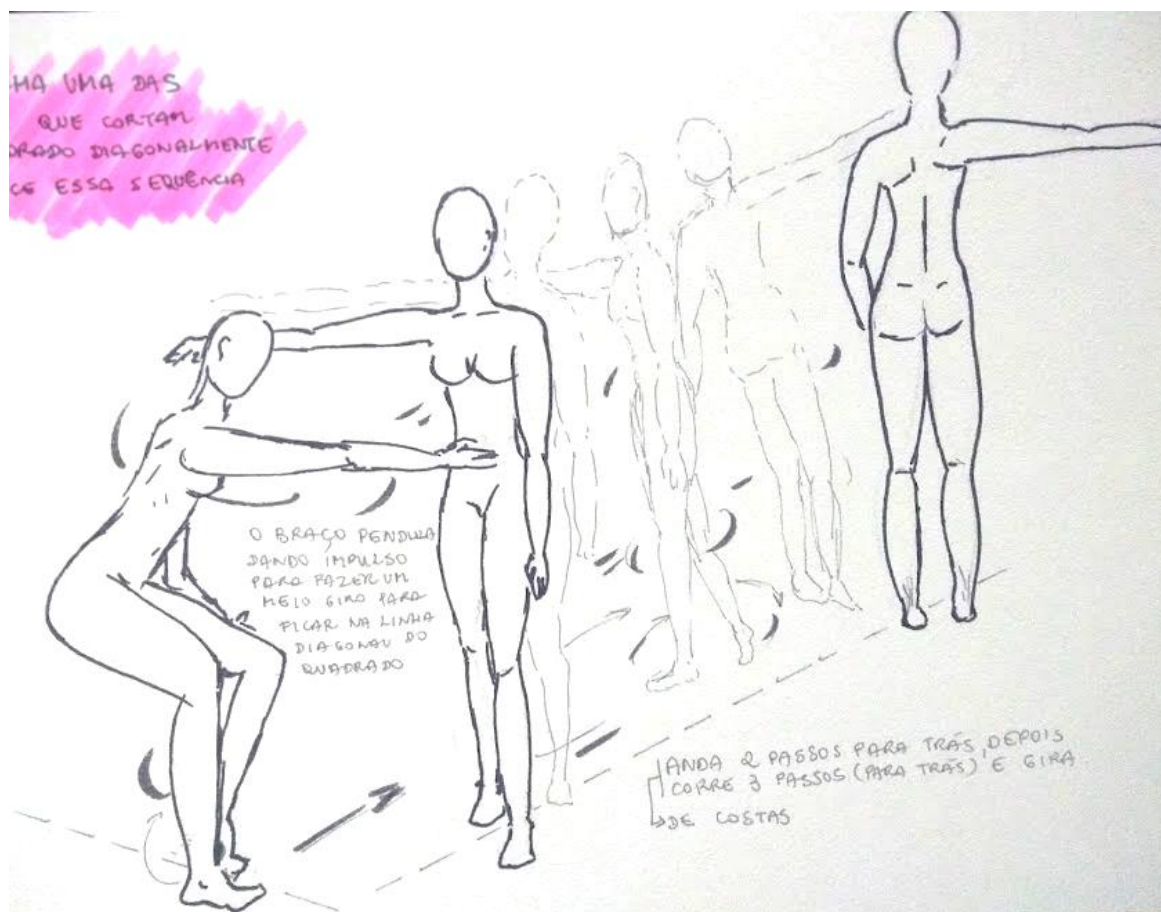 HA UMA DAS
QUE CORTAM
DRADO DIAGONALMENTE
CE ESSA SEQUÊNCIA
O BRAÇO PENDULA
DANDO IMPULSO
PARA FAZER UM
MEIO GIRO PARA
FICAR NA LINHA
DIAGONAL DO
QUADRADO
ANDA 2 PASSOS PARA TRÁS, DEPOIS
CORRE 3 PASSOS (PARA TRÁS) E GIRA
DE COSTAS